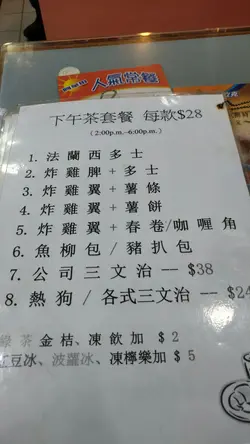 人氣常餐
下午茶套餐 每款$28
(2:00p.m.-6:00p.m.)
1. 法蘭西多士
2. 炸雞脾+多士
3. 炸雞翼+薯條
4. 炸雞翼+薯餅
5. 炸雞翼+春卷/咖喱角
6. 魚柳包/豬扒包
7. 公司三文治 -- $38
8. 熱狗/各式三文治 -- $24
綠茶金桔、凍飲加 $2
紅豆冰、菠蘿冰、凍檸樂加 $5